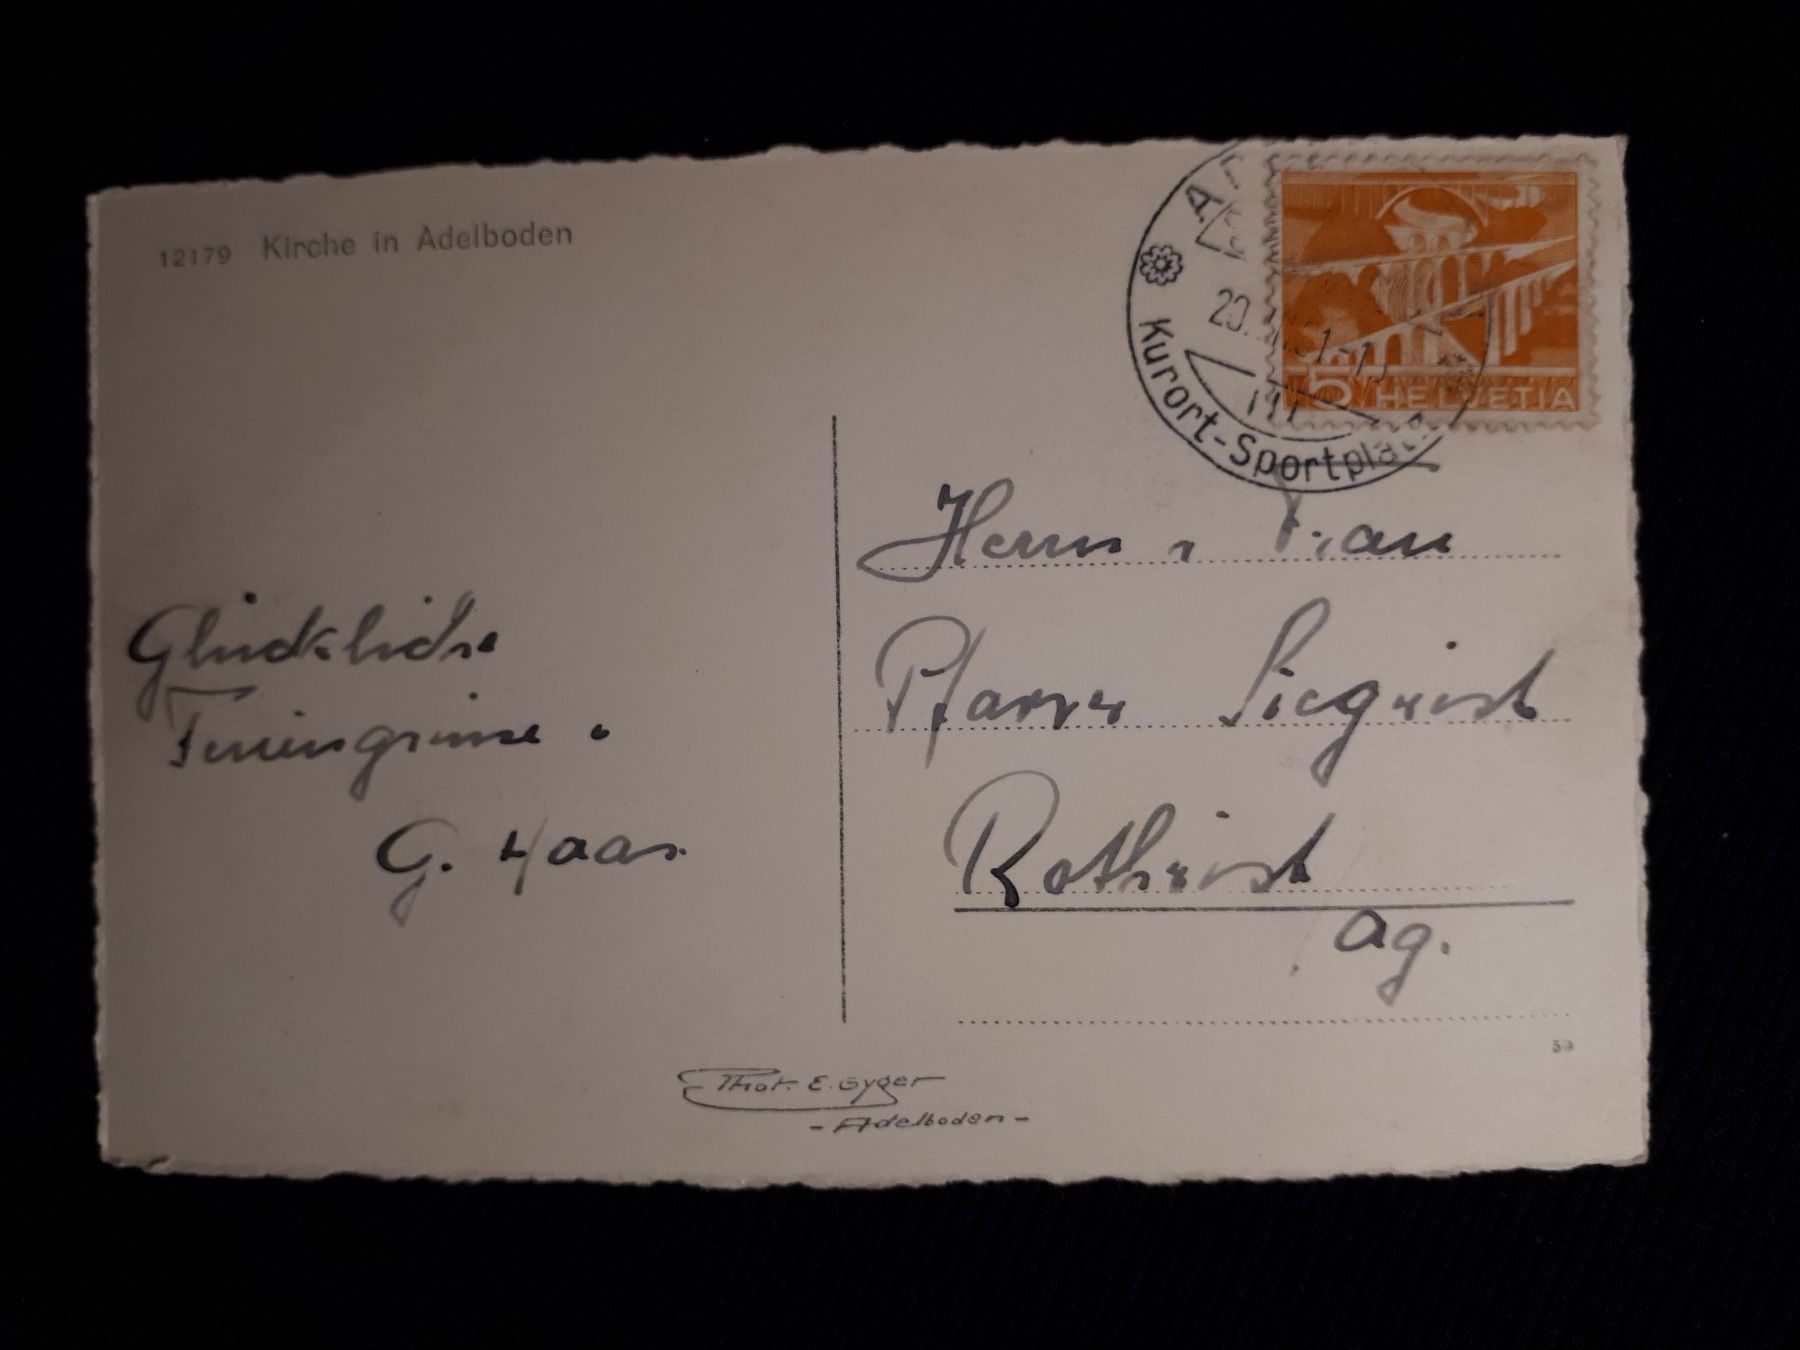 12179 Kirche in Adelboden
Kurort-Sportplatz
5 HELVETIA
Glückliche
Feriengrüsse.
G. Haas.
Herrn u Frau
Pfarrer Siegrist
Rothrist
Ag.
59
Phot. E. Gyger
- Adelboden -